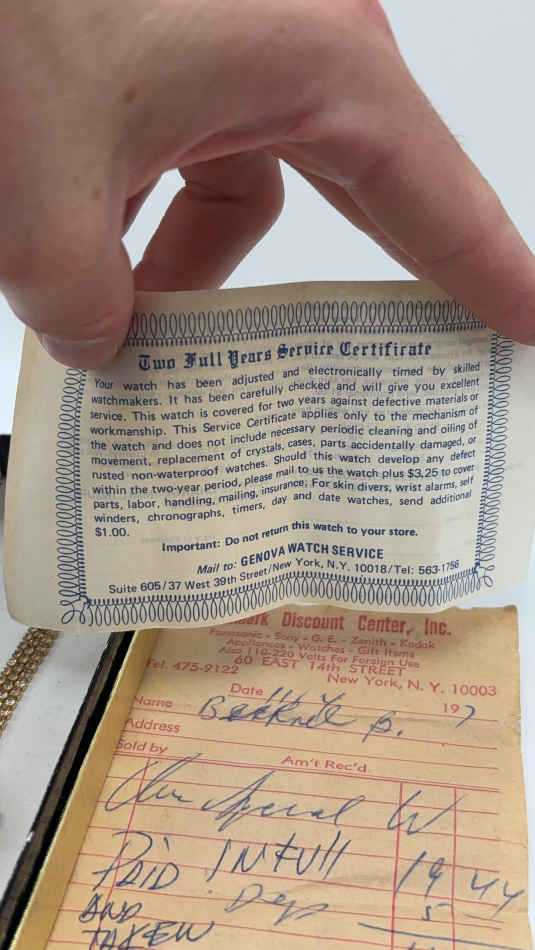 Two Full Years Service Certificate
Your watch has been adjusted and electronically timed by skilled
watchmakers. It has been carefully checked and will give you excellent
service. This watch is covered for two years against defective materials or
workmanship. This Service Certificate applies only to the mechanism of
the watch and does not include necessary periodic cleaning and oiling of
movement, replacement of crystals, cases, parts accidentally damaged, or
rusted non-waterproof watches. Should this watch develop any defect
within the two-year period, please mail to us the watch plus $3.25 to cover
parts, labor, handling, mailing, insurance. For skin divers, wrist alarms, self
winders, chronographs, timers, day and date watches, send additional
$1.00.
Important: Do not return this watch to your store.
Mail to: GENOVA WATCH SERVICE
Suite 605/37 West 39th Street/New York, N.Y. 10018/Tel: 563-1756
Discount Center, Inc.
Panasonic - Sony - G. E. - Zenith - Kodak
Appliances - Watches - Gift Items
Also 110-220 Volts For Foreign Use
60 EAST 14th STREET
Tel. 475-9122 New York, N. Y. 10003
Date 197
Name B.
Address
Sold by Am't Rec'd.
Special W
PAID IN FULL 19 44
AND Dep 5
TAKEN